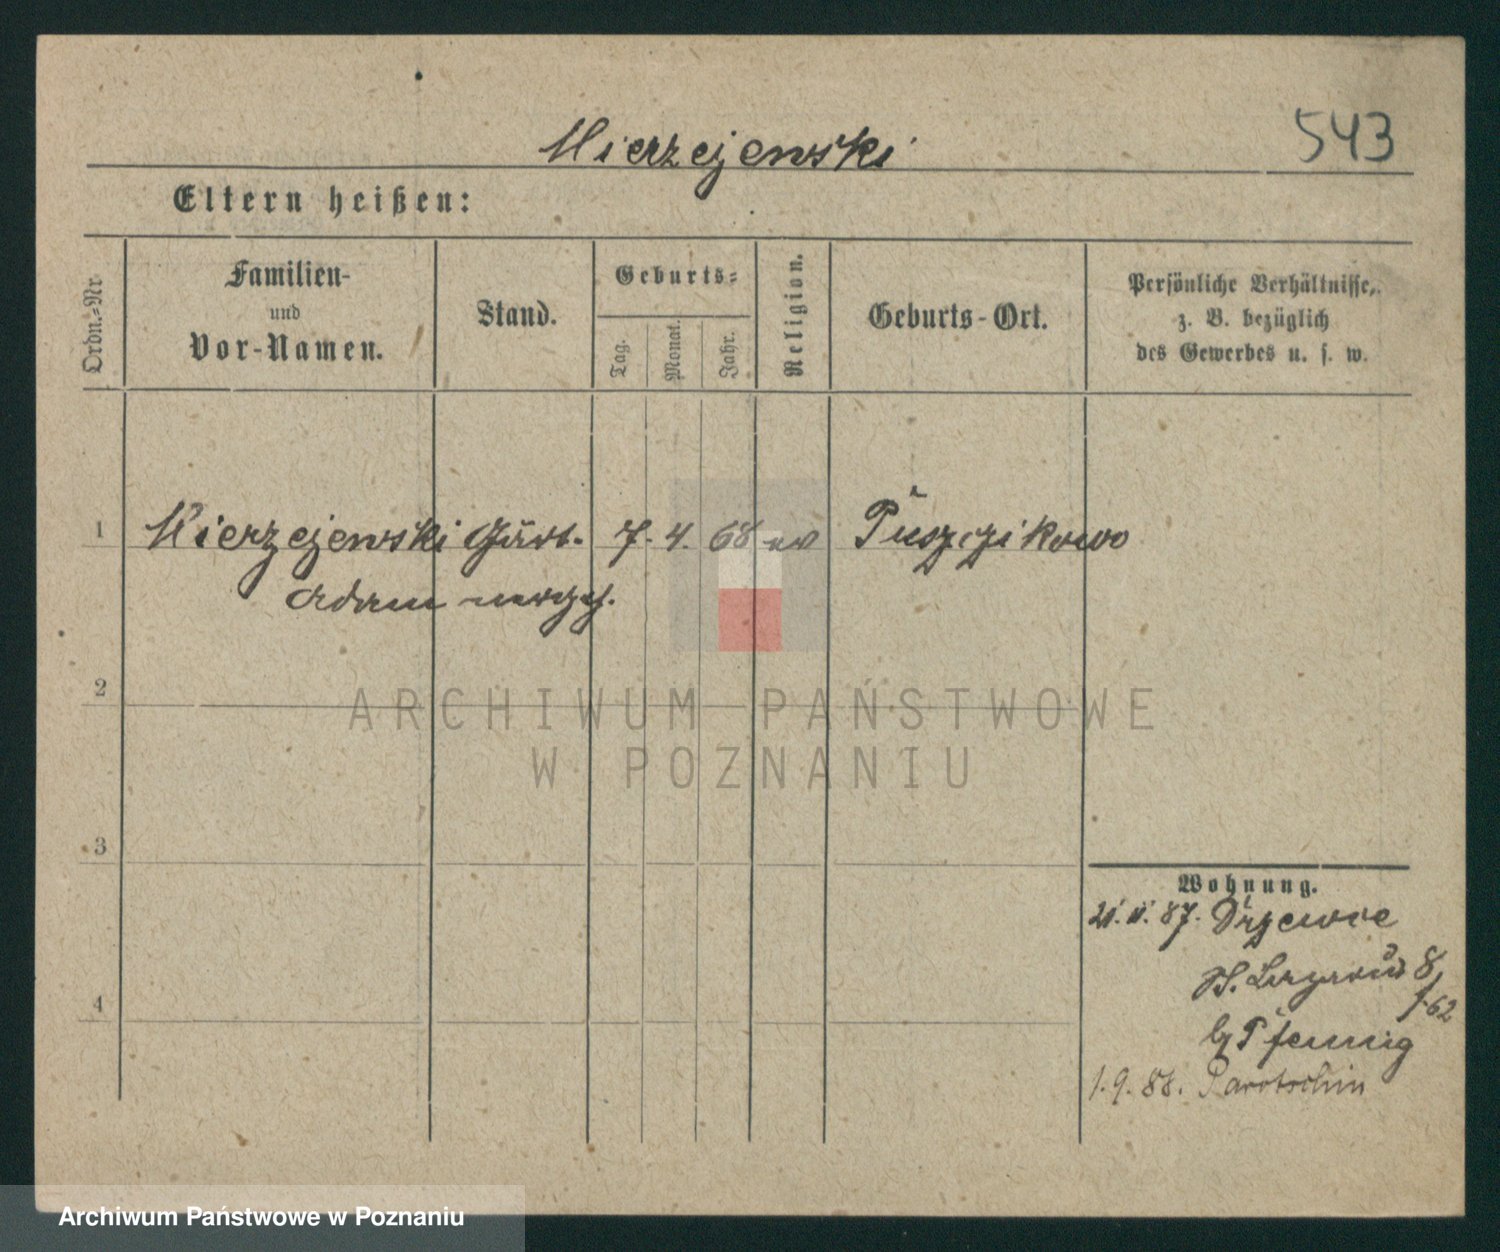 Mierzejewski
543
Eltern heißen:
Ordn.=Nr.
Familien-
und
Vor-Namen.
Stand.
Geburts=
Tag.
Monat.
Jahr.
Religion.
Geburts-Ort.
Persönliche Verhältnisse,
z. B. bezüglich
des Gewerbes u. s. w.
1 Mierzejewski Gärt. 7. 4. 68 Puszczikowo
Adam
2
3
4
Wohnung.
87. Drzewce
St. 8
62
Pfennig
1. 9. 88. Parotschin
ARCHIWUM PAŃSTWOWE
W POZNANIU
Archiwum Państwowe w Poznaniu